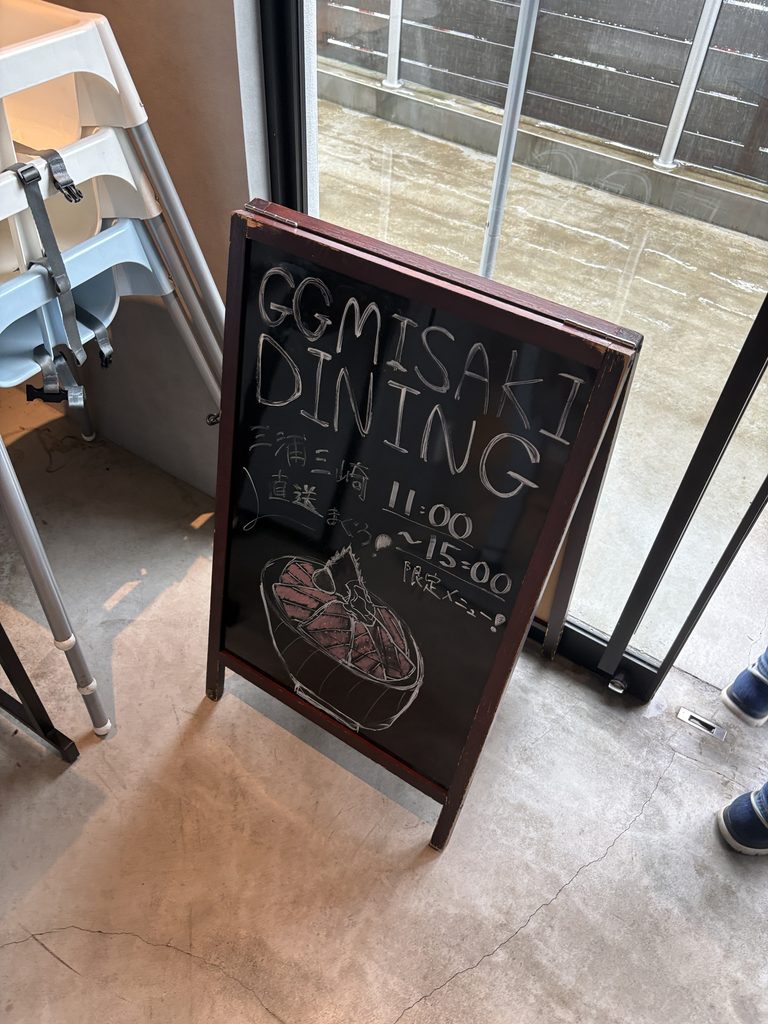 GGMISAKI
DINING
三浦三崎
直送
まぐろ!
11:00
～15:00
限定メニュー!